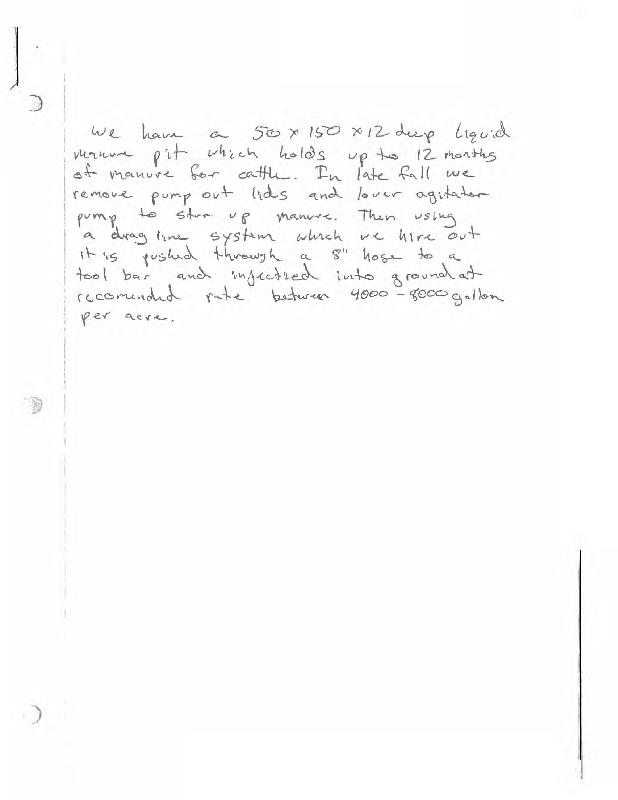 We have a 50 x 150 x 12 deep liquid
manure pit which holds up to 12 months
of manure for cattle. In late fall we
remove pump out lids and lower agitator
pump to stir up manure. Then using
a drag line system which we hire out
it is pushed through a 8" hose to a
tool bar and injectied into ground at
recomended rate between 4000 - 8000 gallon
per acre.